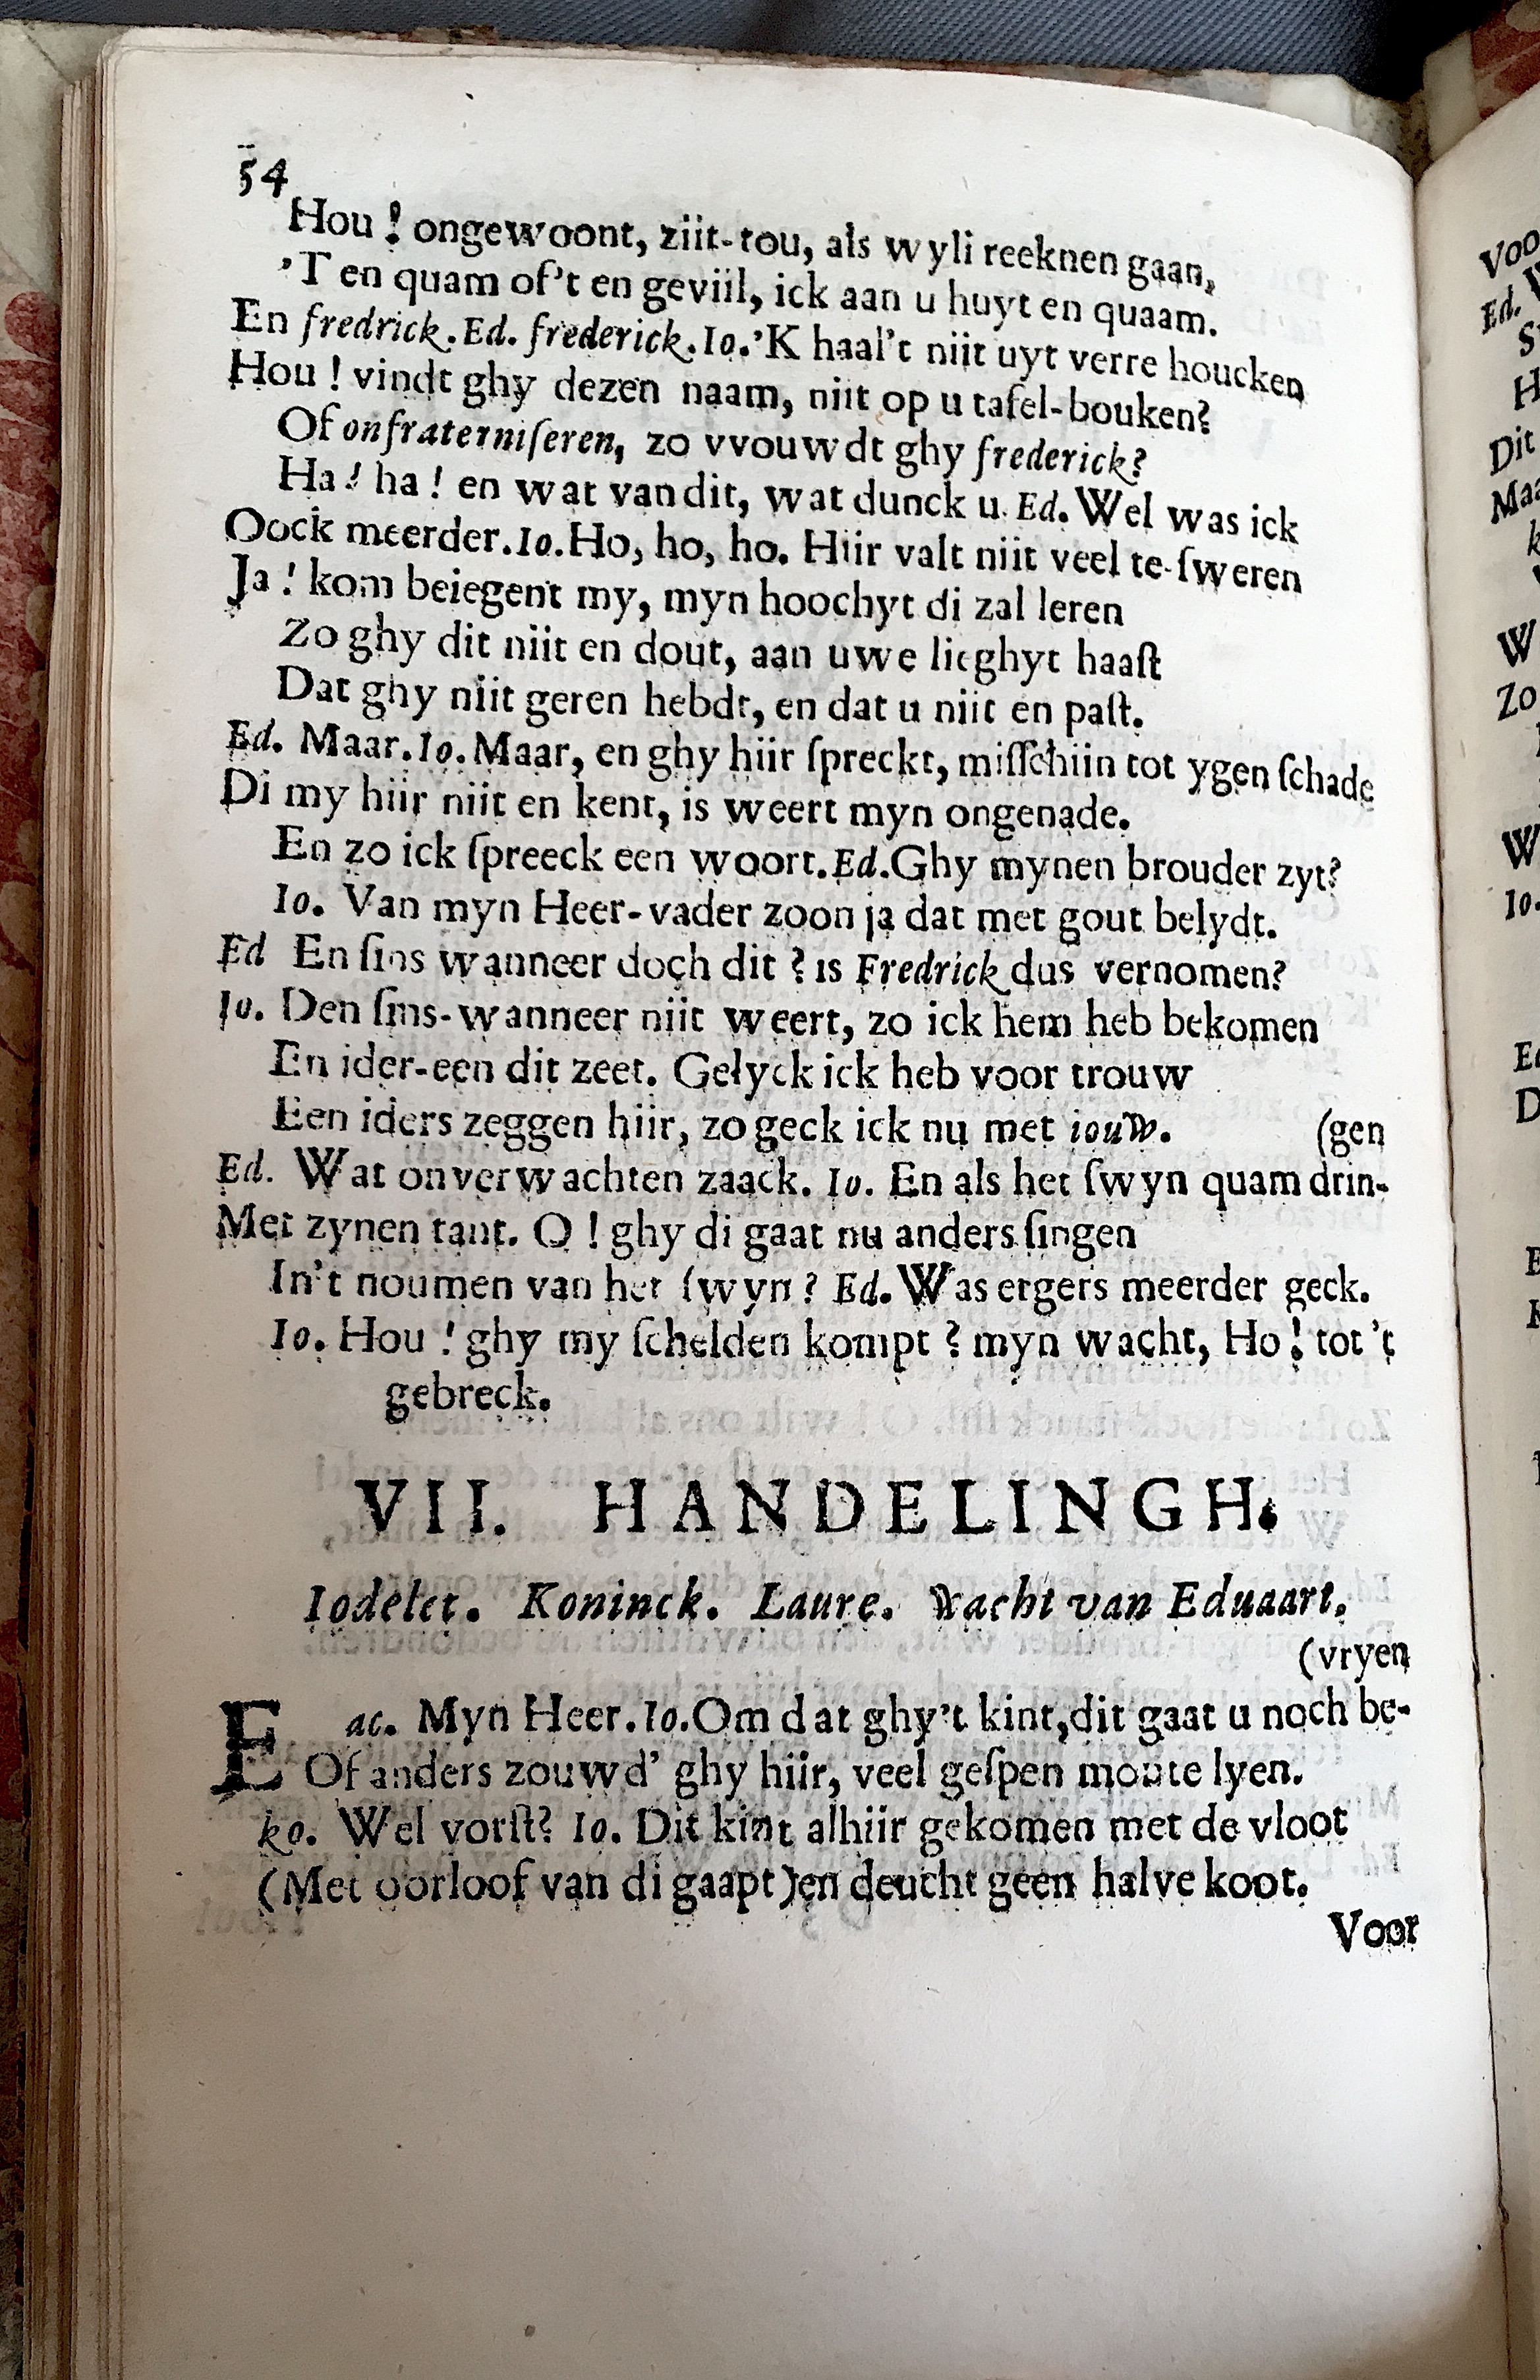 54
Hou! ongewoont, ziit-tou, als wyli reeknen gaan,
'T en quam of't en geviil, ick aan u huyt en quaam.
En fredrick. Ed. frederick. Io. 'K haal't niit uyt verre houcken
Hou! vindt ghy dezen naam, niit op u tafel-bouken?
Of onfraterniſeren, zo vvouwdt ghy frederick?
Ha! ha! en wat van dit, wat dunck u. Ed. Wel was ick
Oock meerder. Io. Ho, ho, ho. Hiir valt niit veel te-ſweren
Ja! kom beiegent my, myn hoochyt di zal leren
Zo ghy dit niit en dout, aan uwe lieghyt haaſt
Dat ghy niit geren hebdt, en dat u niit en paſt.
Ed. Maar. Io. Maar, en ghy hiir ſpreckt, miſſchiin tot ygen ſchade
Di my hiir niit en kent, is weert myn ongenade.
En zo ick ſpreeck een woort. Ed. Ghy mynen brouder zyt?
Io. Van myn Heer-vader zoon ja dat met gout belydt.
Ed En ſins wanneer doch dit? is Fredrick dus vernomen?
Io. Den ſins-wanneer niit weert, zo ick hem heb bekomen
En ider-een dit zeet. Gelyck ick heb voor trouw
Een iders zeggen hiir, zo geck ick nu met iouw. (gen
Ed. Wat onverwachten zaack. Io. En als het ſwyn quam drin-
Met zynen tant. O! ghy di gaat nu anders ſingen
In't noumen van het ſwyn? Ed. Was ergers meerder geck.
Io. Hou! ghy my ſchelden kompt? myn wacht, Ho! tot 't
gebreck.
VII. HANDELINGH.
Iodelet. Koninck. Laure. Wacht van Eduaart.
(vryen
Eac. Myn Heer. Io. Om dat ghy't kint, dit gaat u noch be-
Of anders zouwd' ghy hiir, veel geſpen moute lyen.
ko. Wel vorſt? Io. Dit kint alhiir gekomen met de vloot
(Met oorloof van di gaapt) en deucht geen halve koot.
Voor